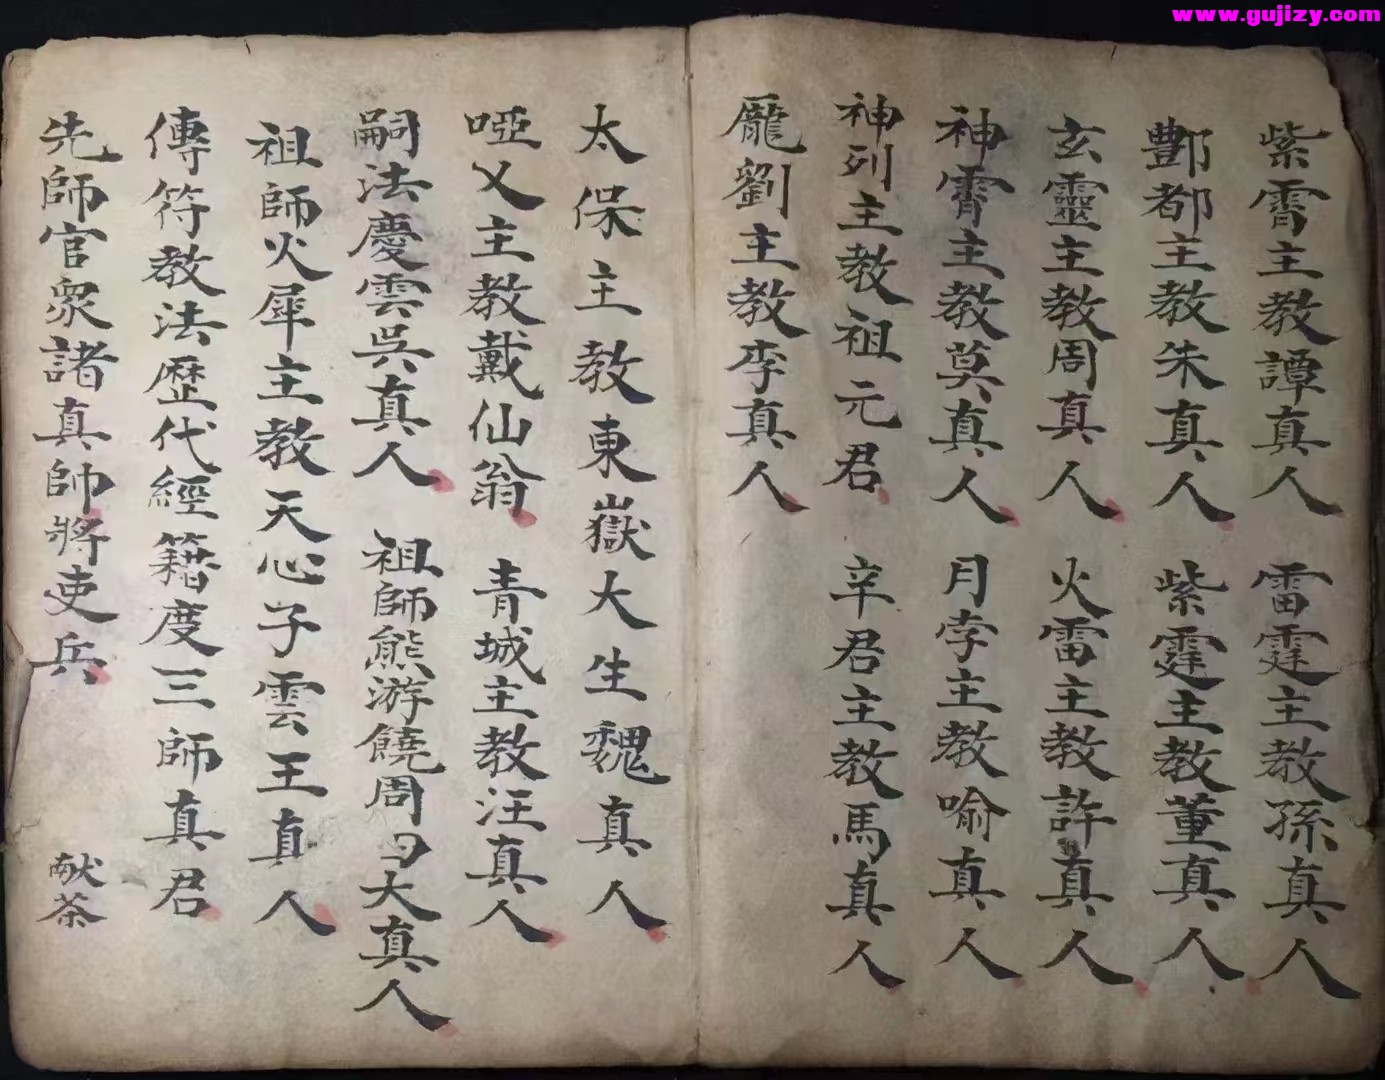 www.gujizy.com
紫霄主教譚真人 雷霆主教孫真人
酆都主教朱真人 紫霆主教董真人
玄靈主教周真人 火雷主教許真人
神霄主教莫真人 月孛主教喻真人
神列主教祖元君 辛君主教馬真人
龐劉主教李真人
太保主教東嶽大生魏真人
啞乂主教戴仙翁 青城主教汪真人
嗣法慶雲吳真人 祖師熊游饒周大真人
祖師火犀主教天心子雲王真人
傳符教法歷代經籍度三師真君
先師官衆諸真帥將吏兵 献茶